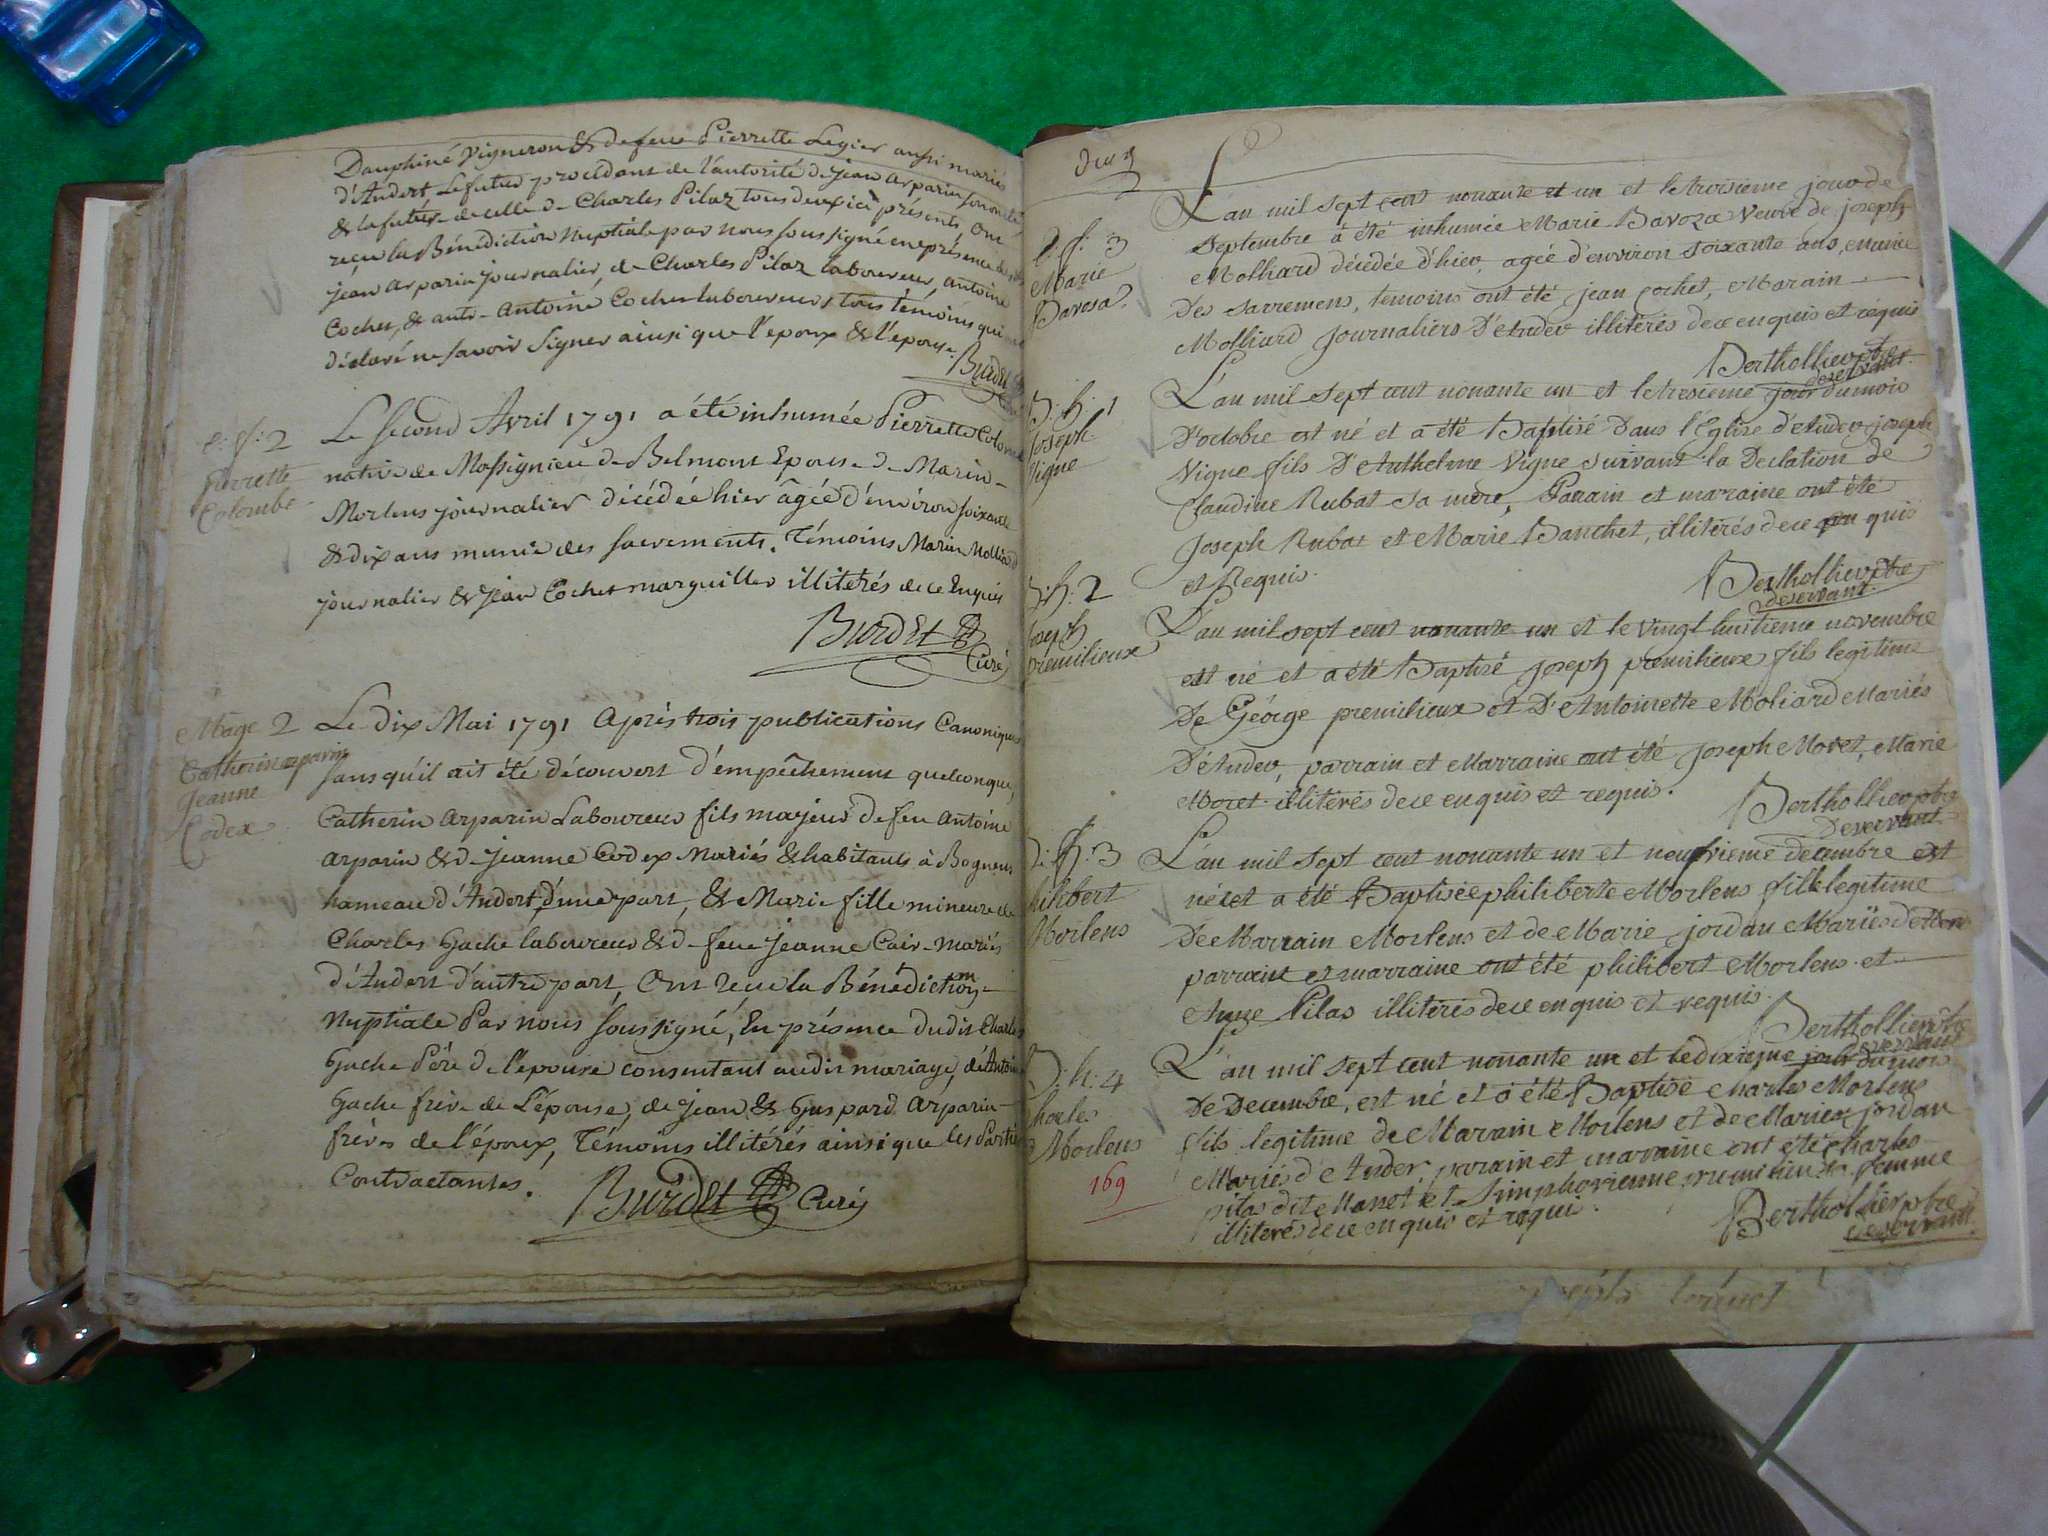 Dauphiné vigneron & de feue Pierrette Legier aussi mariés
d'Andert Le futur procédant de l'autorité de Jean arparin son oncle
& la future de celle de Charles Pilaz tous deux ici présents, Ont
reçu la Bénédiction Nuptiale par nous soussigné en présence de
jean arparin journalier, de Charles Pilaz laboureur, antoine
Cochet, & autre Antoine Cochet laboureurs tous témoins qui ont
déclaré ne savoir signer ainsi que l'epoux & l'epouse.
Burdet
Curé
S: f: 2
Pierrette
Colombe
Le second Avril 1791 a été inhumée Pierrette Colombe
native de Massignieu de Belmont Epouse de Marin
Morlens journalier décédée hier âgée d'environ soixante
& dix ans munie des sacrements. Témoins Marin Molliard
journalier & jean Cochet marguiller illitérés de ce Enquis
Burdet
Curé
Mage 2
Catherin arparin
Jeanne
Codex
Le dix Mai 1791 Après trois publications Canoniques
sans qu'il ait été découvert d'empêchement quelconque,
Catherin arparin Laboureur fils majeur de feu Antoine
arparin & de jeanne Codex Mariés & habitants à Bognens
hameau d'Andert d'une part, & Marie fille mineure de
Charles Gache laboureur & de feue jeanne Cair Mariés
d'Andert d'autre part, Ont reçu la Bénédiction
Nuptiale Par nous soussigné, En présence dudit Charles
Gache Père de l'epouse consentant audit mariage, d'Antoine
Gache frère de L'épouse, de jean & Gaspard Arparin
frères de l'époux, Témoins illitérés ainsi que les Parties
Contractantes.
Burdet Curé
L'an mil sept cent nonante et un et le troisieme jour de
Septembre à été inhumée Marie Bavoza veuve de joseph
Molliard décédée d'hier, agée d'environ soixante ans, munie
Des sacremens, temoins ont été jean cochet, Marain
Molliard journaliers D'Ander illiterés de ce enquis et réquis
Berthollier ptre
deservant
S. f: 3
Marie
Bavosa
L'an mil sept cent nonante un et le treseme jour du mois
D'octobre est né et a été Baptisé Dans l'Eglise d'Ander joseph
Vigne fils D'Anthelme Vigne suivant la Declation de
Claudine Rubat sa mere, Parain et maraine ont été
Joseph Rubat et Marie Banchet, illiterés de ce en quis
et Requis.
Berthollier ptre
deservant
B: h: 1
Joseph
Vigne
L'an mil sept cent nonante un et le vingt huitieme novembre
est né et a été Baptisé joseph premilieux fils legitime
De Géorge premilieux et D'Antoinette Moliard Mariés
D'Ander, parrain et Marraine ont été joseph Moret, Marie
Moret illiterés de ce en quis et requis.
Bertholler ptre
Deservant
B. h: 2
Joseph
premilieux
L'an mil sept cent nonante un et neufvieme decembre est
née et a été Baptisée philiberte Morlens fille legitime
De Marrain Morlens et de Marie jordan Mariés d'Ander
parrain et marraine ont été philibert Morlens et
Pilas illiterés de ce en quis et requis.
Bertholler ptre
deservant
B. h: 3
philibert
Morlens
L'an mil sept cent nonante un et le dixieme jour du mois
De Decembre, est né et a été Baptisé Charles Morlens
fils legitime de Marain Morlens et de Marie jordan
Mariés d'Ander, parain et maraine ont été charles
pilas dit Manet et Simphorienne premilieu sa femme
illiterés de ce en quis et requis.
Bertholler ptre
deservant
B. h: 4
Charles
Morlens
169